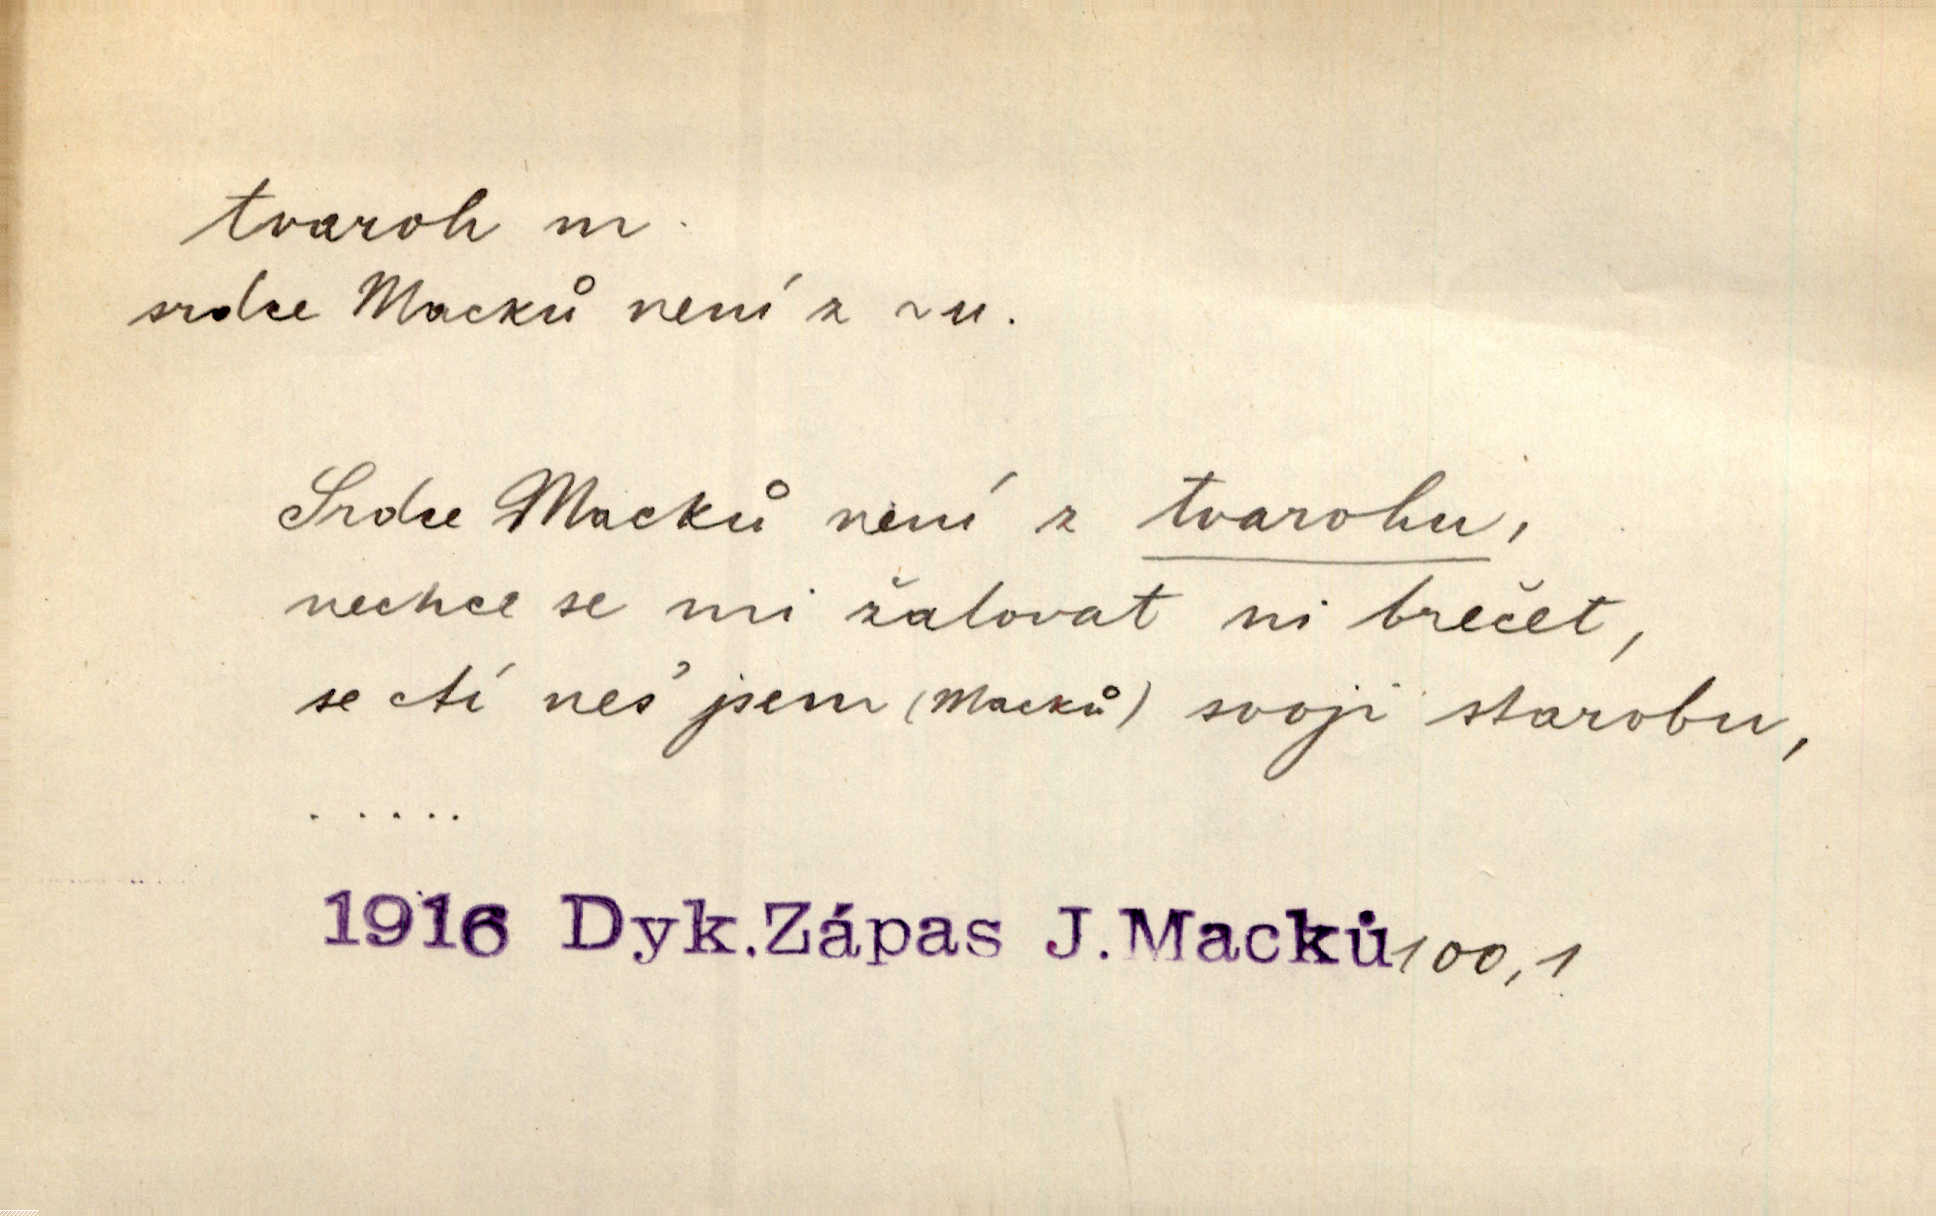 tvaroh m.
srdce Macků není z ~u.
Srdce Macků není z tvarohu,
nechce se mi žalovat ni brečet,
se ctí nes' jsem (Macků) svoji starobu,
.....
1916 Dyk.Zápas J.Macků 100,1